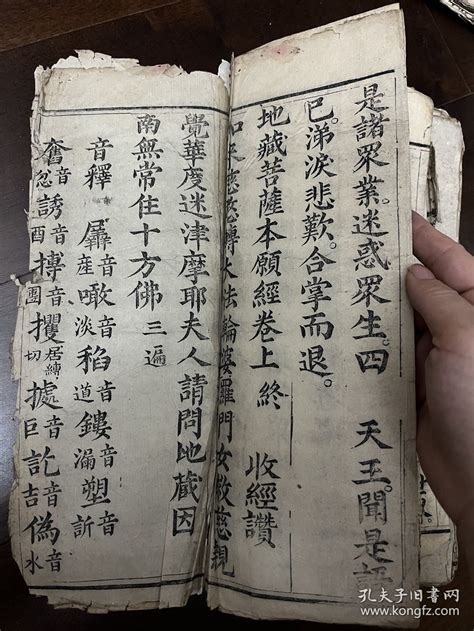 是諸眾業。迷惑眾生。四天王。聞是語
已。涕淚悲歎。合掌而退。
地藏菩薩本願經卷上 終 收經讚
如來慈悲轉大法輪婆羅門女救慈親
覺華度迷津摩耶夫人請問地藏因
南無常住十方佛 三遍
音釋 羼音產 噉音淡 稻音道 鏤音漏 塑音訴
誘音酉 摶音團 攫居縛切 音巨 訖音吉 偽音
孔夫子旧書网
www.kongfz.com